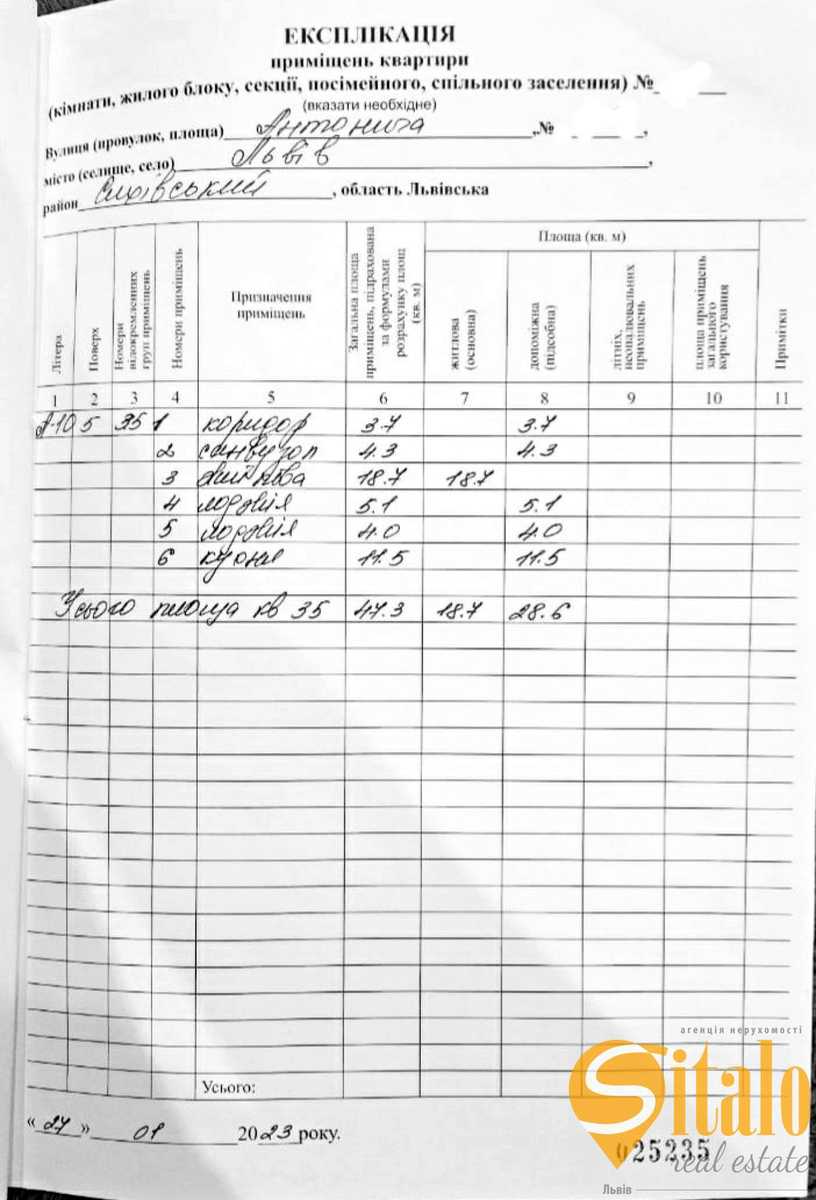 ЕКСПЛІКАЦІЯ
приміщень квартири
(кімнати, жилого блоку, секції, посімейного, спільного заселення) №
(вказати необхідне)
Вулиця (провулок, площа) Антонича, №
місто (селище, село) Львів,
район Сихівський, область Львівська
Літера
Поверх
Номери відокремленних груп приміщень
Номери приміщень
Призначення приміщень
Загальна площа приміщень, підрахована за формулами розрахунку площ (кв. м)
Площа (кв. м)
житлова (основна)
допоміжна (підсобна)
літніх, неопалювальних приміщень
площа приміщень загального користування
Примітки
1 2 3 4 5 6 7 8 9 10 11
А-10 5 35 1 коридор 3.7 3.7
2 санвузол 4.3 4.3
3 житлова 18.7 18.7
4 лоджія 5.1 5.1
5 лоджія 4.0 4.0
6 кухня 11.5 11.5
Усього площа кв 35 47.3 18.7 28.6
Усього:
« 27 » 01 2023 року.
025235
агенція нерухомості
Sitalo
real estate
Львів